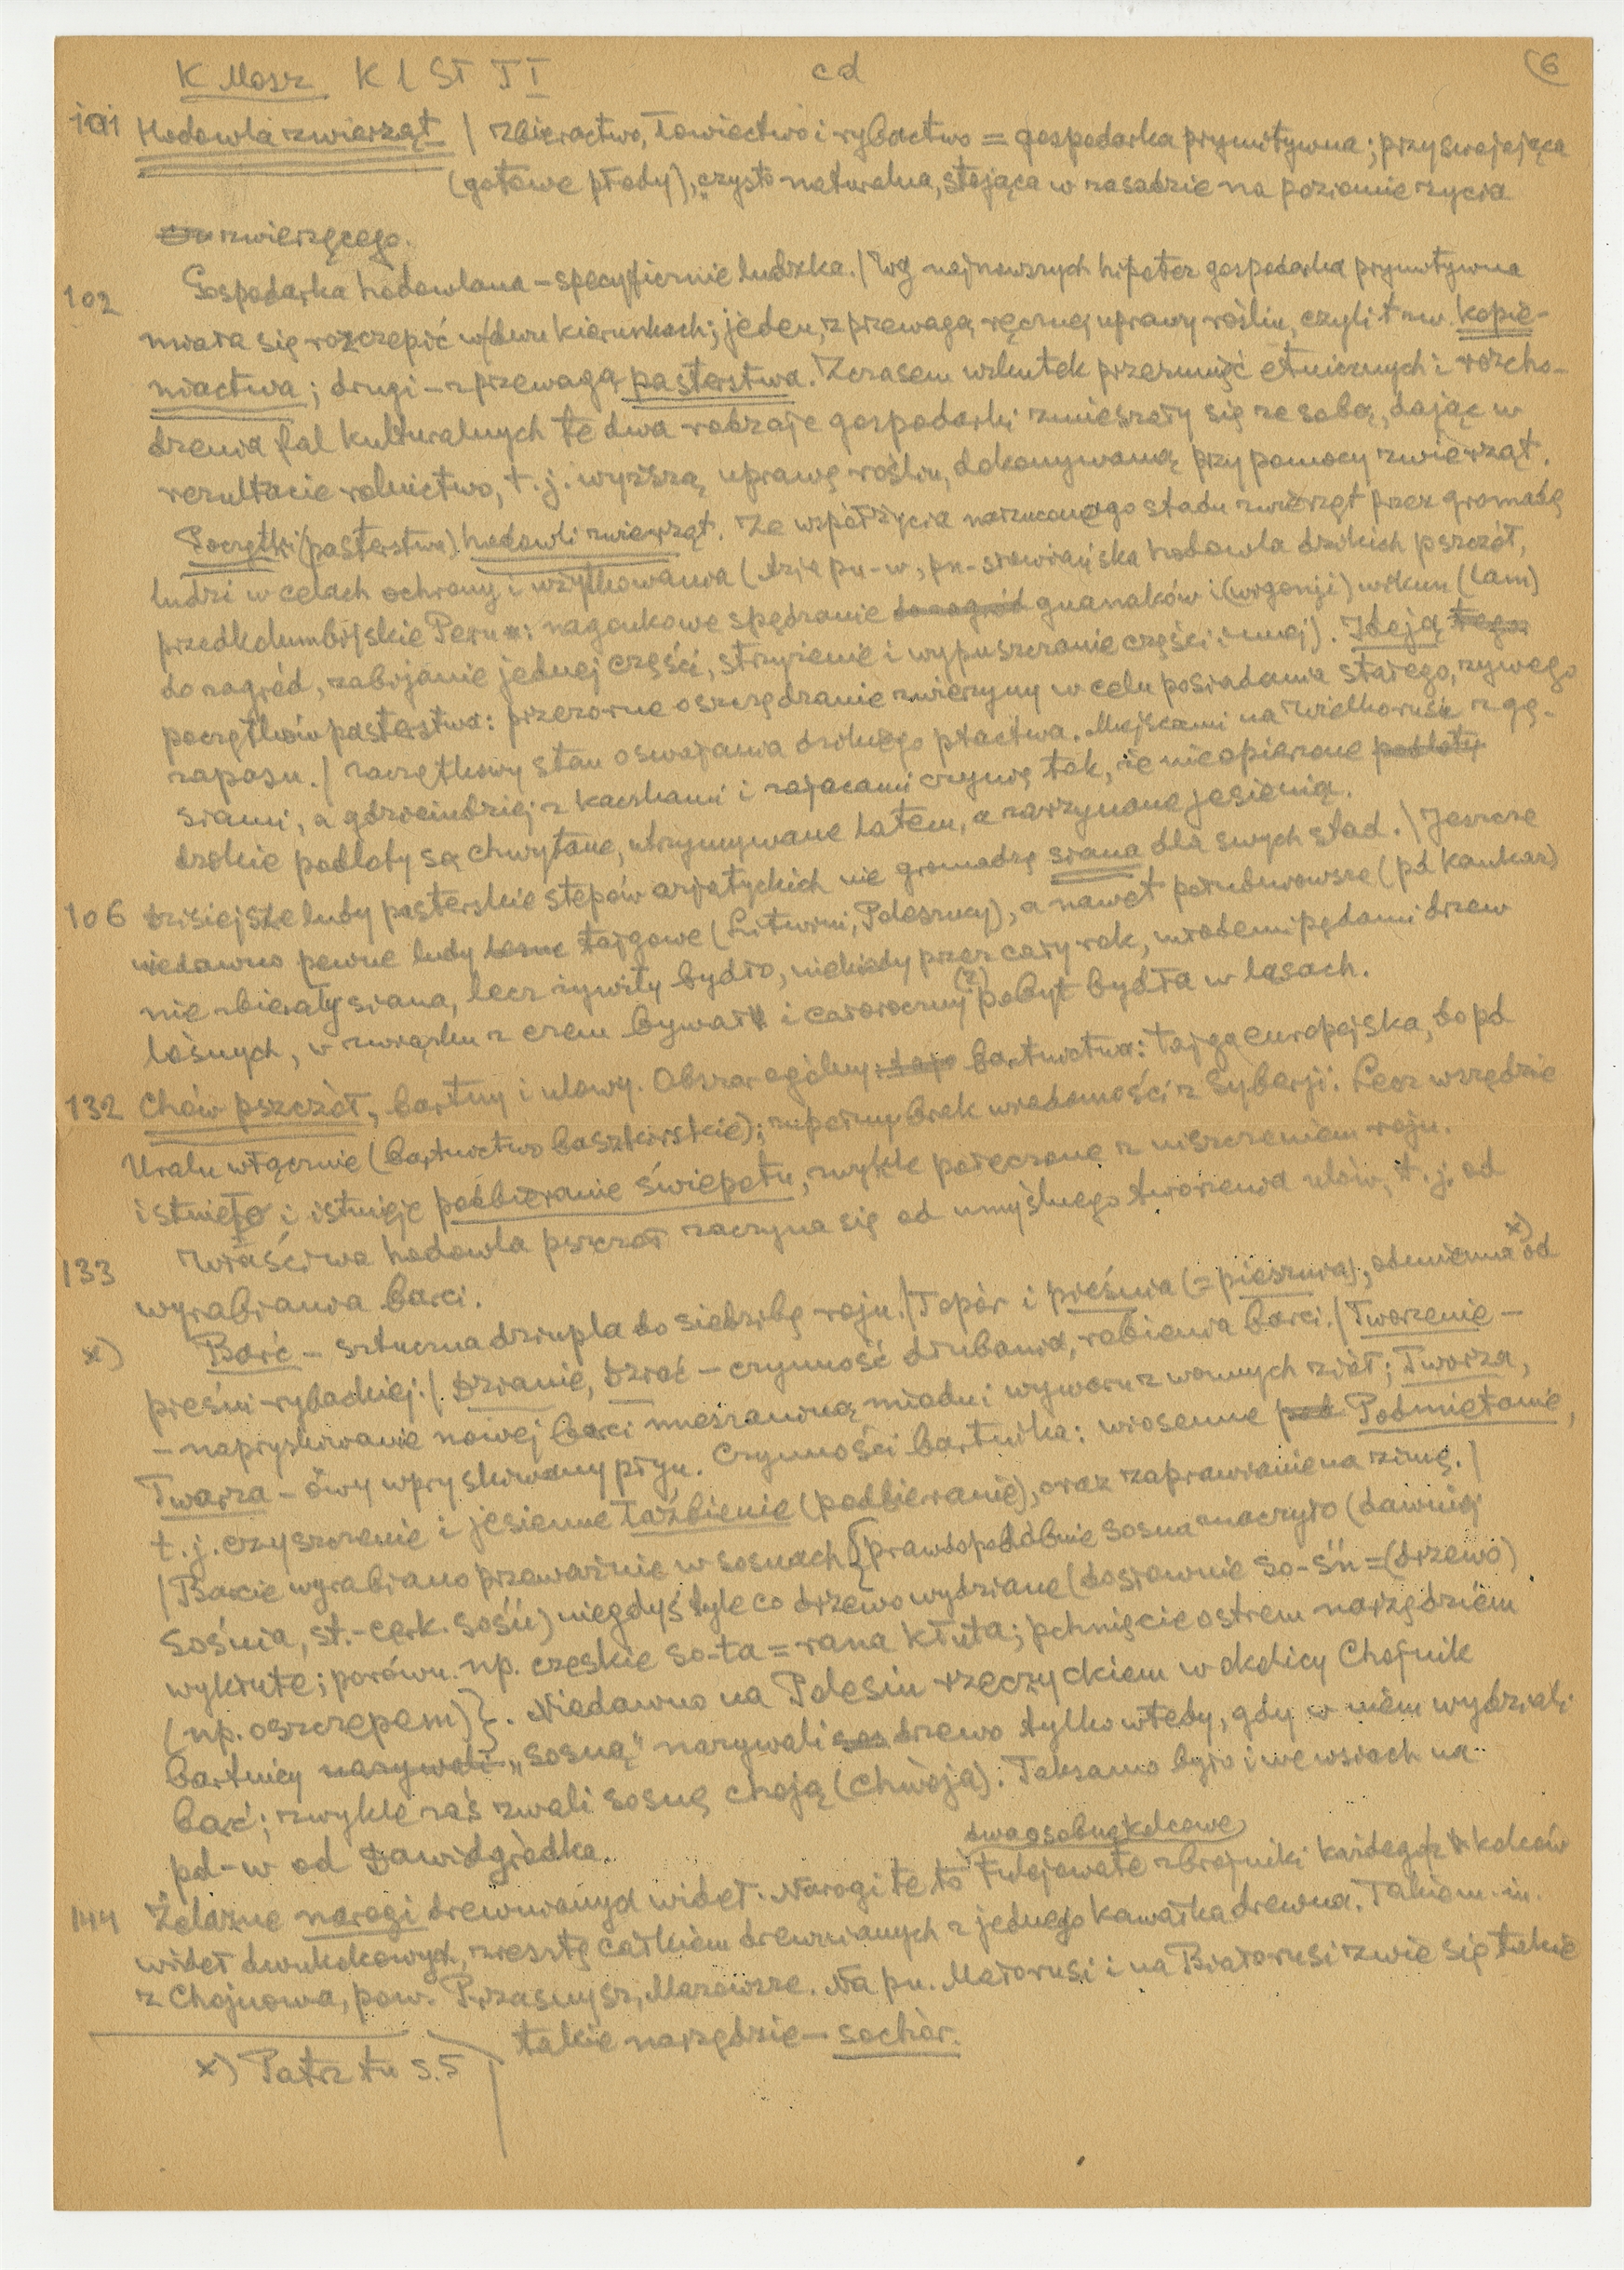 K Mosz K L St I I cd (6
101 Hodowla zwierząt / Zbieractwo, łowiectwo i rybactwo = gospodarka prymitywna; przyswajająca
(gotowe płody), czysto naturalna, stojąca w zasadzie na poziomie życia
zwierzęcego.
102 Gospodarka hodowlana – specyficznie ludzka. / Wg najnowszych hipotez gospodarka prymitywna
miała się rozczepić w dwu kierunkach; jeden, z przewagą ręcznej uprawy roślin, czyli t. zw. kopie-
niactwa; drugi – z przewagą pasterstwa. Z czasem wskutek przesunięć etnicznych i rozcho-
dzenia fal kulturalnych te dwa rodzaje gospodarki zmieszały się ze sobą, dając w
rezultacie rolnictwo, t. j. wyższą uprawę roślin, dokonywaną przy pomocy zwierząt.
Początki (pasterstwa) hodowli zwierząt. Ze współżycia narzuconego stadu zwierząt przez gromadę
ludzi w celach ochrony i użytkowania (dziś pn-w, pn-słowiańska hodowla dzikich pszczół,
przedkolumbijskie Peru: nagonkowe spędzanie do zagród guanaków i (wigonji) wikun (lam)
do zagród, zabijanie jednej części, strzyżenie i wypuszczanie części innej). Ideją tego
początków pasterstwa: przezorne oszczędzanie zwierzyny w celu posiadania stałego, żywego
zapasu. / Zaczątkowy stan oswajania dzikiego ptactwa. Miejscami na Wielkorusi z gę-
siami, a gdzieindziej z kaczkami i zającami czynią tak, że nieopierzone podloty
dzikie podloty są chwytane, utrzymywane latem, a zarzynane jesienią.
106 Dzisiejsze ludy pasterskie stepów azjatyckich nie gromadzą siana dla swych stad. \ Jeszcze
niedawno pewne ludy leśne tajgowe (Litwini, Poleszucy), a nawet południowsze (pd Kaukaz)
nie zbierały siana, lecz żywiły bydło, niekiedy przez cały rok, młodemi pędami drzew
liośnych, w związku z czem bywał i całoroczny (?) pobyt bydła w lasach.
132 Chów pszczół, bartny i ulowy. Obszar ogólny bartnictwa: tajga europejska, do pd
Uralu włącznie (bartnictwo baszkirskie); zupełny brak wiadomości z Syberji. Lecz wszędzie
istniało i istnieje podbieranie świepetu, zwykle połączone z niszczeniem roju.
133 Właściwa hodowla pszczół zaczyna się od umyślnego tworzenia ulów, t. j. od
wyrabiania barci.
x) Barć – sztuczna dziupla do siedzibę roju. / Topór i pieśnia (= piesznia), odmienna x) od
pieśni rybackiej. / Dzianie, dziać – czynność dłubania, robienia barci. / Tworzenie –
– napryskiwanie nowej barci mieszaniną miodu i wywaru z wonnych ziół; Tworza,
Twarza – ówy wpryskiwany płyn. Czynności bartnika: wiosenne pod Podmiatanie,
t. j. czyszczenie i jesienne łaźbienie (podbieranie), oraz zaprawianie na zimę. /
/ Barcie wyrabiano przeważnie w sosnach {prawdopodobnie sosna znaczyło (dawniej
sośnia, st.-cerk. sośń) niegdyś tyle co drzewo wydziane (dosłownie so-śń = (drzewo)
wykłute; porówn. np. czeskie so-ta = rana kłuta; pchnięcie ostrem narzędziem
(np. oszczepem)}. Niedawno na Polesiu rzeczyckiem w okolicy Chojnik
bartnicy nazywali „sosną" nazywali sos drzewo tylko wtedy, gdy w niem wydziali
barć; zwykle zaś zwali sosnę choją (chwoja). Taksamo było i we wsiach na
pd-w od Dawidgródka.
dwa osobne kolcowe
144 Żelazne narogi drewnianych wideł. Narogi te to tulejowate zbrojniki każdego z kolców
wideł dwukolcowych, zresztą całkiem drewnianych z jednego kawałka drewna. Takiem. in.
z Chojnowa, pow. Przasnysz, Mazowsze. Na pn. Małorusi i na Białorusi zwie się takie
takie narzędzie – sochàr.
x) Patrz tu s. 5